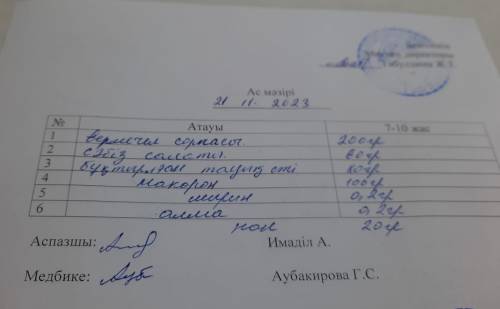 Бекітемін
Мектеп директоры
Ж.Т.
Ас мәзірі
21 11. 2023
№ Атауы 7-10 жас
1 вермечел сорпасы. 200гр
2 сәбіз салаты. 60гр
3 бұқтырылған тауық еті 80гр
4 макарон 100гр
5 шырын 0,2гр
6 алма 0,2гр
нан 20гр
Аспазшы: Имаділ А.
Медбике: Аубакирова Г.С.